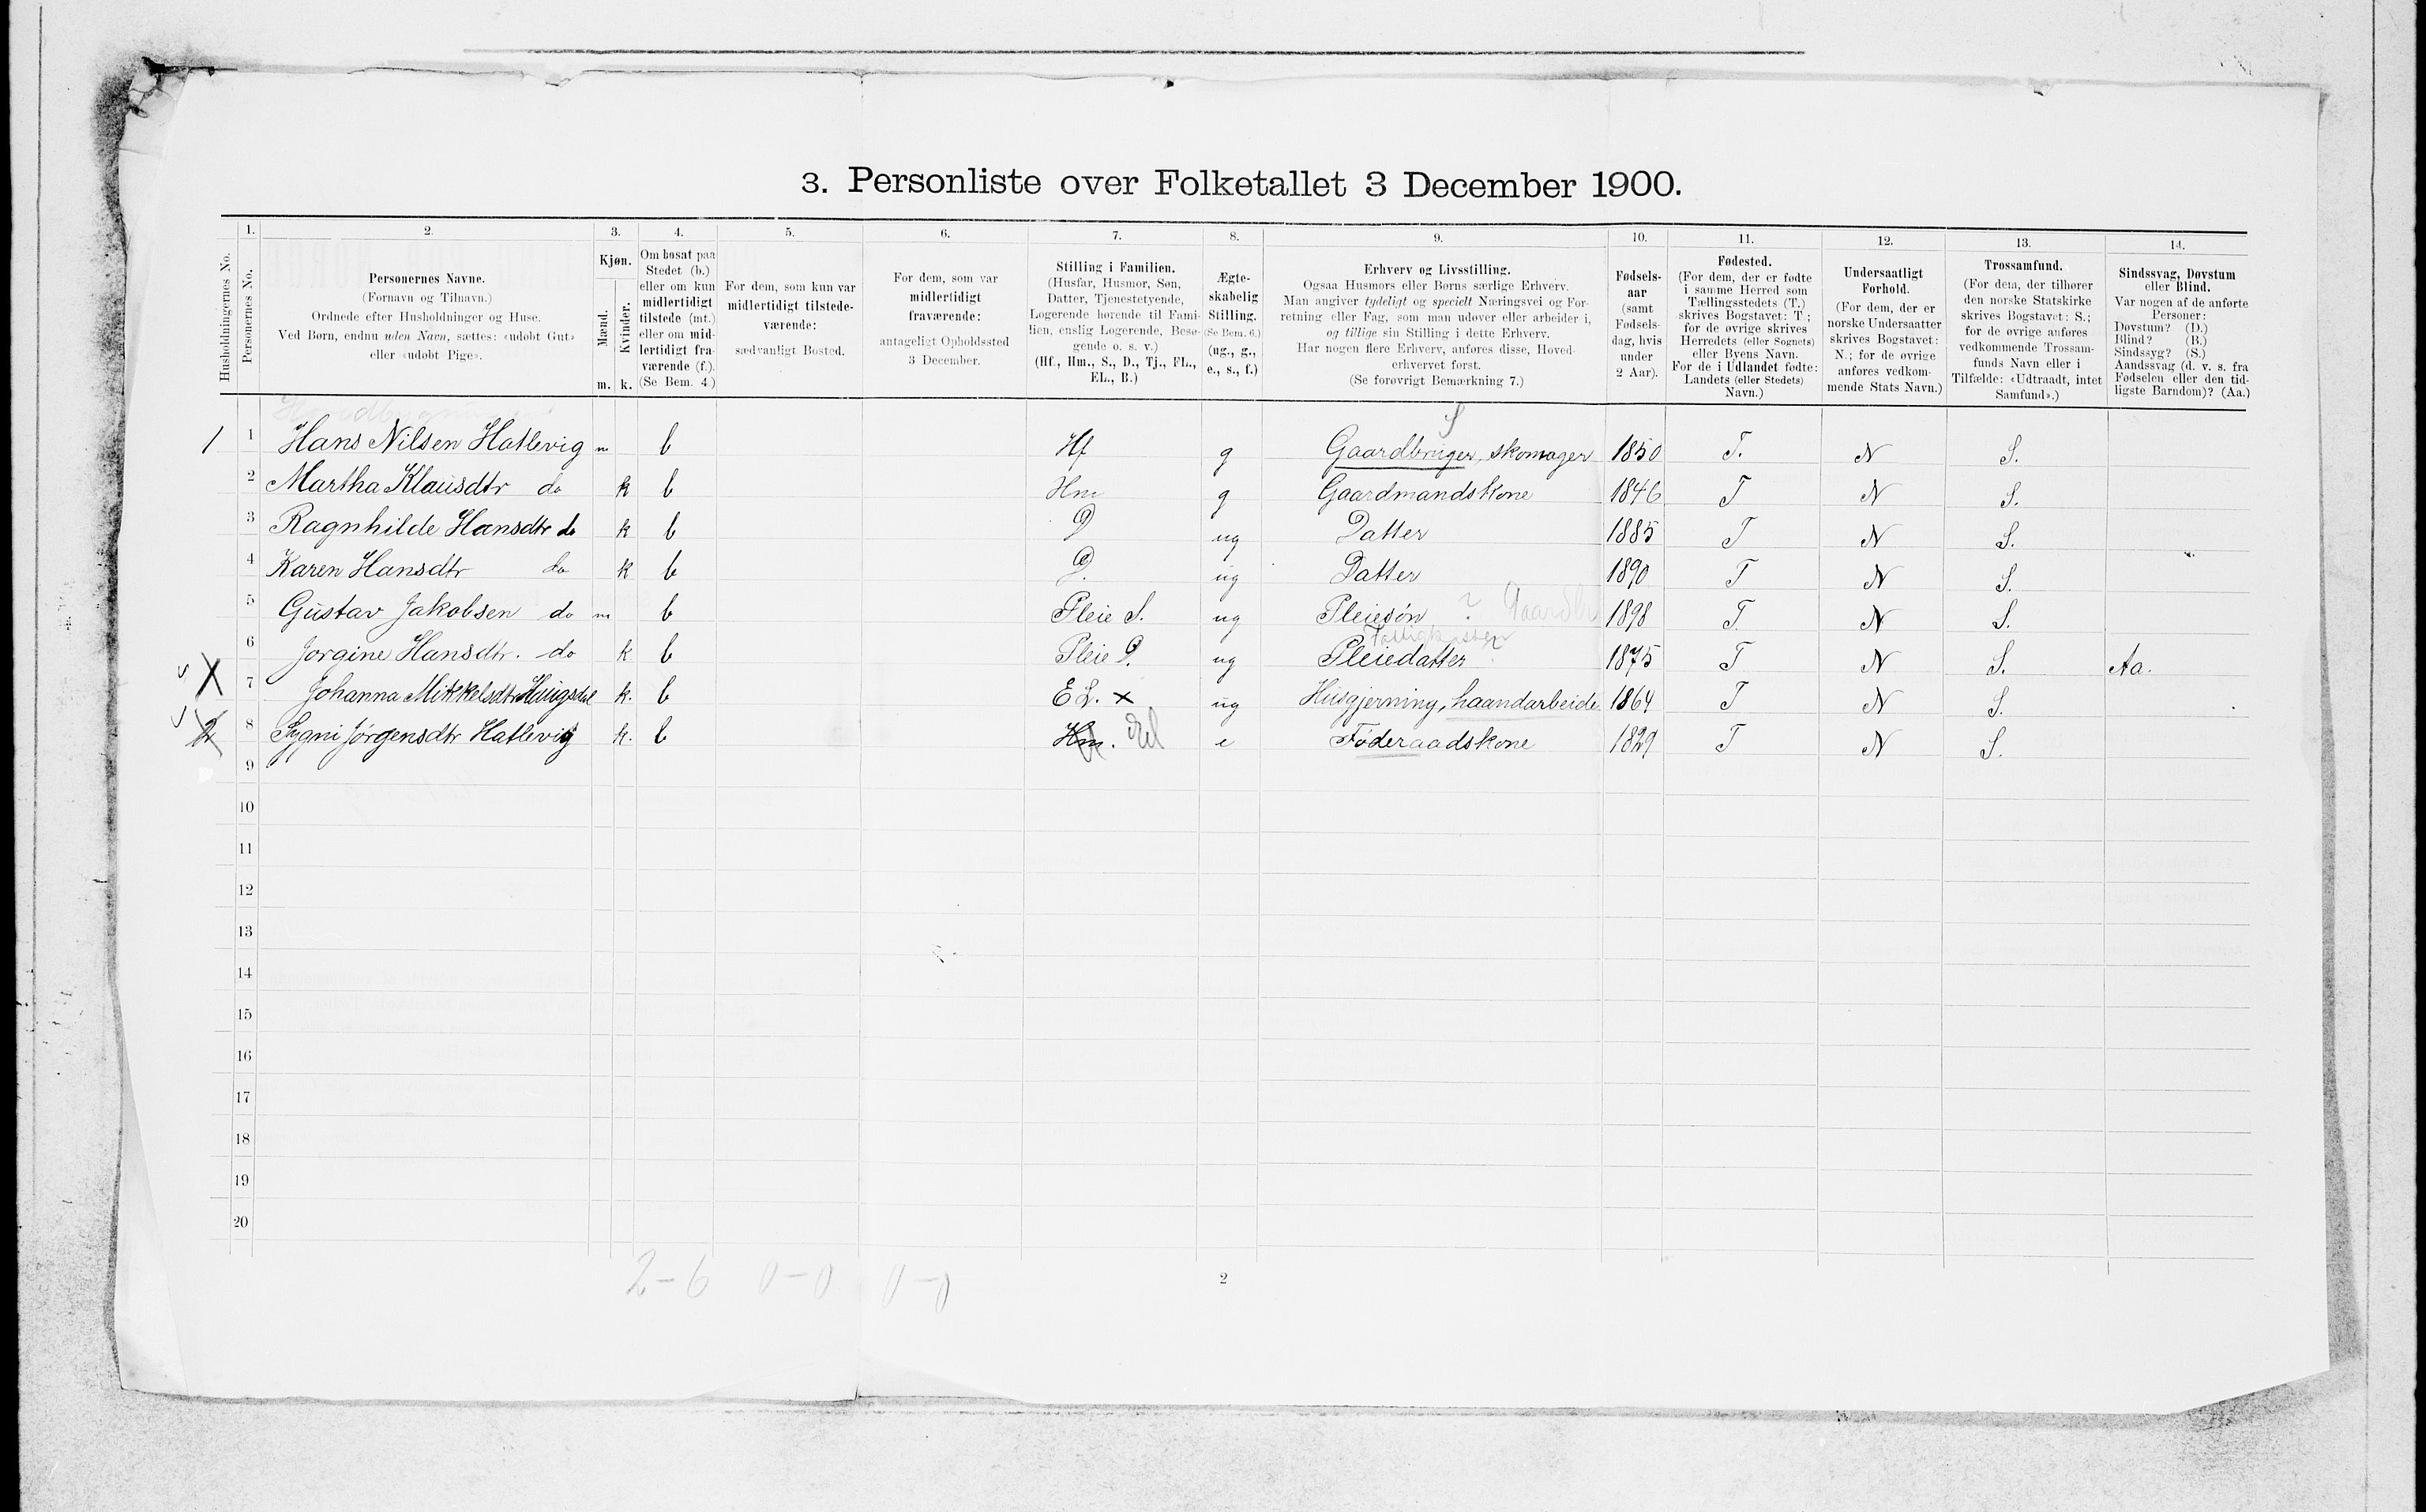 3. Personliste over Folketallet 3 December 1900.
1. 2. 3. 4. 5. 6. 7. 8. 9. 10. 11. 12. 13. 14.
Husholdningernes No.
Personernes No.
Personernes Navne.
(Fornavn og Tilnavn.)
Ordnede efter Husholdninger og Huse.
Ved Børn, endnu uden Navn, sættes: «udøbt Gut»
eller «udøbt Pige».
Kjøn.
Mænd.
Kvinder.
m. k.
Om bosat paa
Stedet (b.)
eller om kun
midlertidigt
tilstede (mt.)
eller om mid-
lertidigt fra-
værende (f.).
(Se Bem. 4.)
For dem, som kun var
midlertidigt tilstede-
værende:
sædvanligt Bosted.
For dem, som var
midlertidigt
fraværende:
antageligt Opholdssted
3 December.
Stilling i Familien.
(Husfar, Husmor, Søn,
Datter, Tjenestetyende,
Logerende hørende til Fami-
lien, enslig Logerende, Besø-
gende o. s. v.)
(Hf., Hm., S., D., Tj., FL.,
EL., B.)
Ægte-
skabelig
Stilling.
(Se Bem. 6.)
(ug., g.,
e., s., f.)
Erhverv og Livsstilling.
Ogsaa Husmors eller Børns særlige Erhverv.
Man angiver tydeligt og specielt Næringsvei og For-
retning eller Fag, som man udøver eller arbeider i,
og tillige sin Stilling i dette Erhverv.
Har nogen flere Erhverv, anføres disse, Hoved-
erhvervet først.
(Se forøvrigt Bemærkning 7.)
Fødsels-
aar
(samt
Fødsels-
dag, hvis
under
2 Aar).
Fødested.
(For dem, der er fødte
i samme Herred som
Tællingsstedets (T.)
skrives Bogstavet: T.;
for de øvrige skrives
Herredets (eller Sognets)
eller Byens Navn.
For de i Udlandet fødte:
Landets (eller Stedets)
Navn.)
Undersaatligt
Forhold.
(For dem, der er
norske Undersaatter
skrives Bogstavet:
N.; for de øvrige
anføres vedkom-
mende Stats Navn.)
Trossamfund.
(For dem, der tilhører
den norske Statskirke
skrives Bogstavet: S.;
for de øvrige anføres
vedkommende Trossam-
funds Navn eller i
Tilfælde: «Udtraadt, intet
Samfund».)
Sindssvag, Døvstum
eller Blind.
Var nogen af de anførte
Personer:
Døvstum? (D.)
Blind? (B.)
Sindssyg? (S.)
Aandssvag (d. v. s. fra
Fødselen eller den tid-
ligste Barndom)? (Aa.)
1 1 Hans Nilsen Hatlevig m b Hf g Gaardbruger, skomager 1850 T. N S.
2 Martha Klausdtr do k b Hm g Gaardmandskone 1846 T N S.
3 Ragnhilde Hansdtr do k b D ug Datter 1885 T N S.
4 Karen Hansdtr do k b D. ug Datter 1890 T N S.
5 Gustav Jakobsen do m b Pleie S. ug Pleiesøn ? Gaardbr 1898 T. N S.
6 Jorgine Hansdtr. do k b Pleie D. ug Pleiedatter 1875 T N S. Aa.
X 7 Johanna Mikkelsdtr Haugsdal k. b EL. x ug Husgjerning, haandarbeide 1864 T N S.
2 8 Sygni Jørgensdtr Hatlevig k. b Hm. el e Føderaadskone 1829 T N S.
9
10
11
12
13
14
15
16
17
18
19
20
2-6 0-0 0-0
2